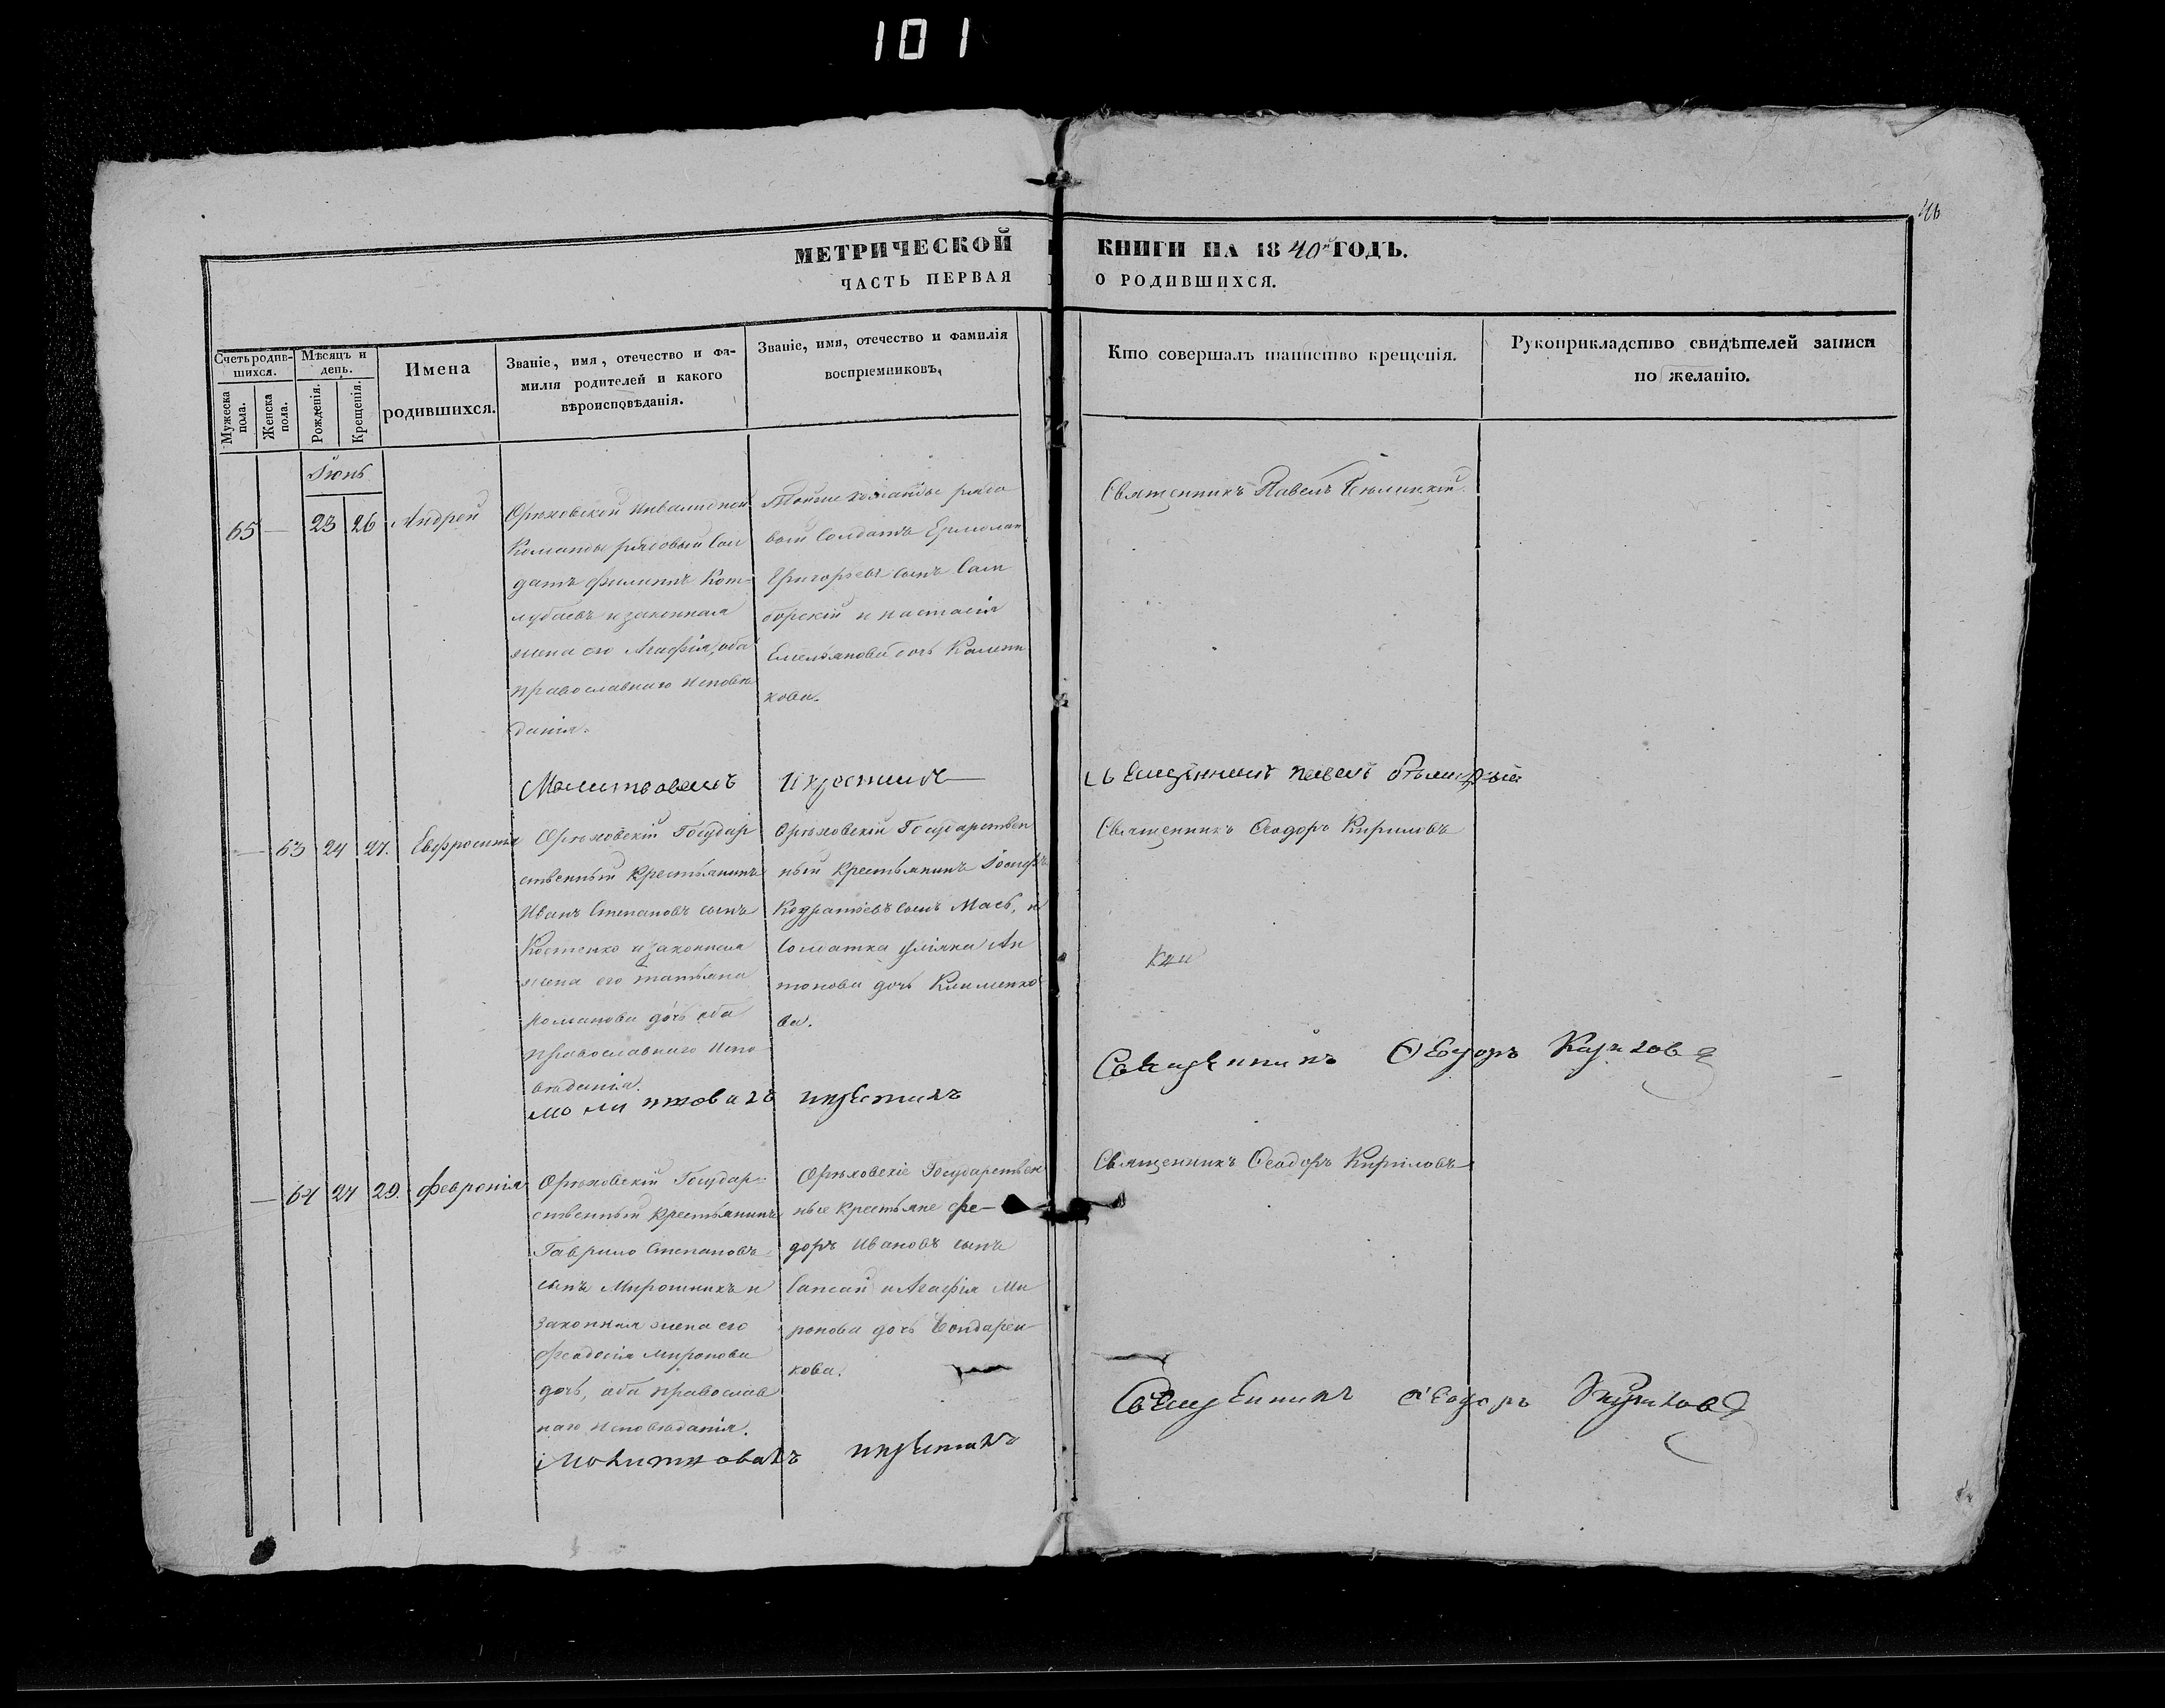 101
46
МЕТРИЧЕСКОЙ КНИГИ НА 1840й ГОДЪ.
ЧАСТЬ ПЕРВАЯ О РОДИВШИХСЯ.
Счетъ родившихся.
Мужеска пола.
Женска пола.
Мѣсяцъ и день.
Рожденія.
Крещенія.
Имена
родившихся.
Званіе, имя, отечество и фа-
милія родителей и какого
вѣроисповѣданія.
Званіе, имя, отечество и фамилія
воспріемниковъ.
Кто совершалъ таинство крещенія.
Рукоприкладство свидѣтелей записи
по желанію.
Іюнь
65 — 23 26 Андрей
Орѣховской Инвалидной
Команды рядовый Сол
датъ Филиппъ Кот-
лубаевъ и законная
жена его Агафія, оба
православнаго исповѣ
данія.
Тойже команды рядо
вый Солдатъ Ермолай
Григорьевъ сынъ Сам
борскій и настасія
Емельянова дочь Калени
кова.
Священникъ Павелъ Бѣлицкій.
Молитвовалъ и крестилъ
Священникъ павелъ бѣлицкій
— 63 24 27. Евфросинія
Орѣховскій Государ
ственный крестьянинъ
Иванъ Степановъ сынъ
Костенко и законная
жена его татьяна
романова дочь оба
православнаго испо
вѣданія.
Орѣховскій Государствен
ный крестьянинъ Іосифъ
Кодратіевъ сынъ Масъ, и
Солдатка уліяна Ан
тонова дочь Клименко
ва.
Священникъ Ѳеодоръ Кириловъ
молитвовалъ и крестилъ
Священникъ Ѳеодоръ Кириловъ
— 64 24 29. Февронія
Орѣховскій Государ-
ственный крестьянинъ
Гаврило Степановъ
сынъ Мирошникъ и
законная жена его
Феодосія миронова
дочь, оба православ
наго исповѣданія.
Орѣховскіе Государствен
ные крестьяне Фе-
доръ Ивановъ сынъ
Гапсай и Агафія Ми
ронова дочь Бондарен-
кова.
Священникъ Ѳеодоръ Кириловъ
молитвовалъ и крестилъ
Священникъ Ѳеодоръ Кириловъ